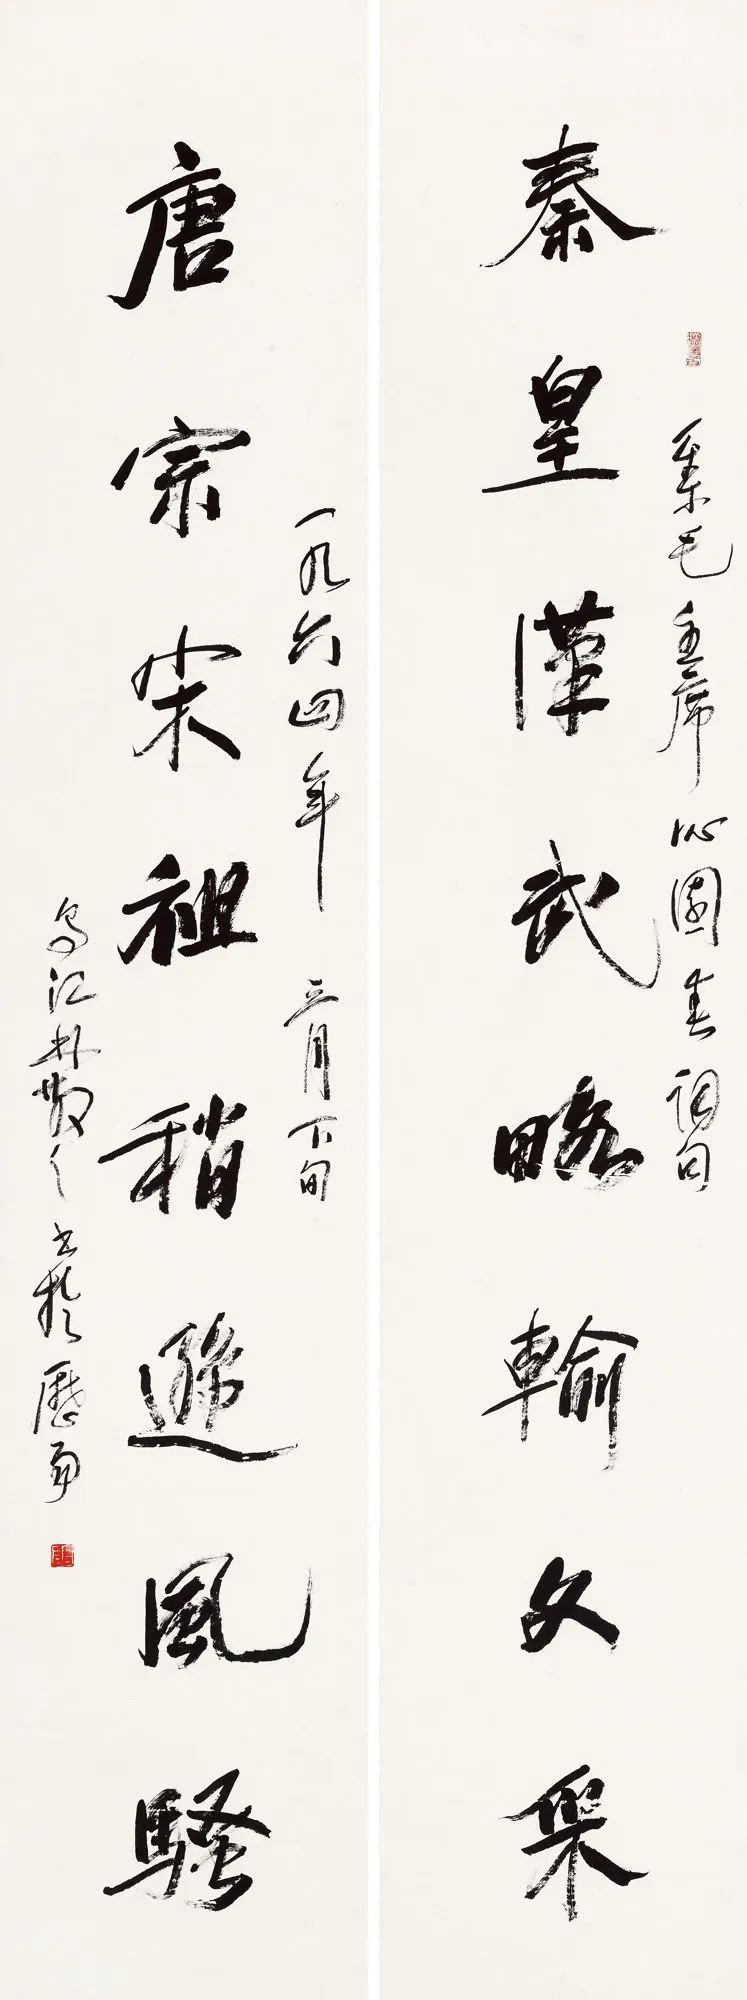 秦皇漢武略輸文采
集毛主席沁園春詞句
唐宗宋祖稍遜風騷
一九六四年三月下旬
烏江林散之書於歷陽